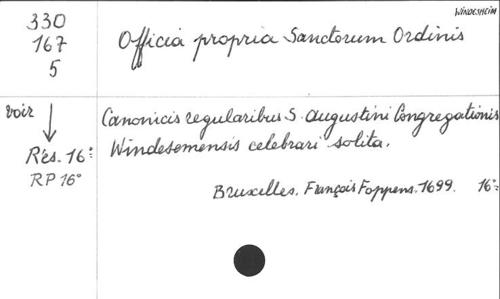 WINDESHEIM
330
167
5
Officia propria Sanctorum Ordinis
voir
Rés. 16º
RP 16º
Canonicis regularibus S. Augustini Congregationis
Windesemensis celebrari solita.
Bruxelles. François Foppens. 1699. 16º